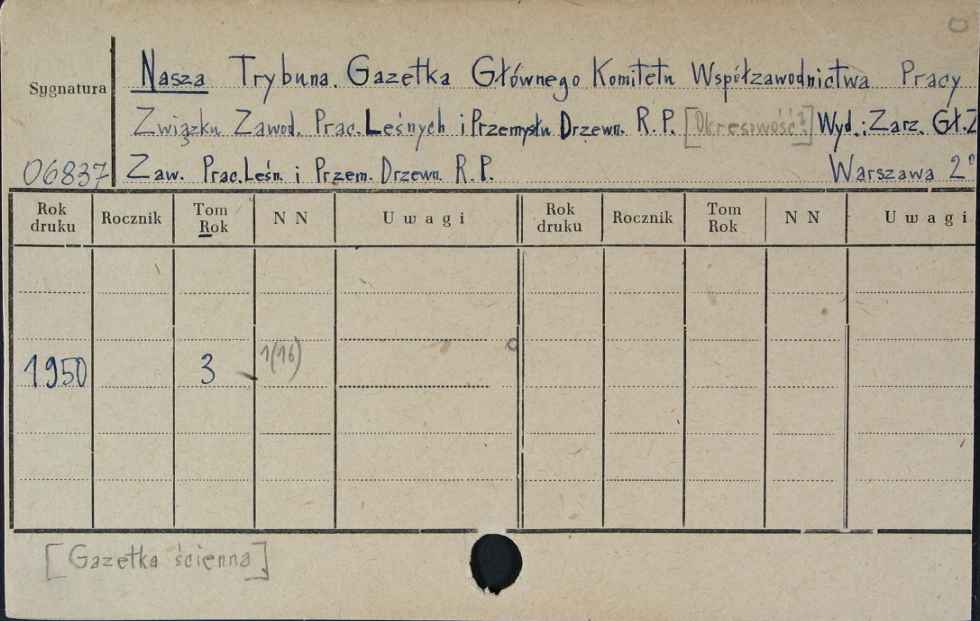 Sygnatura
06837
Nasza Trybuna. Gazetka Głównego Komitetu Współzawodnictwa Pracy
Związku Zawod. Prac. Leśnych i Przemysłu Drzewn. R.P. [Okresowość?] Wyd.: Zarz. Gł. Z
Zaw. Prac. Leśn. i Przem. Drzewn. R.P. Warszawa 2°
Rok druku Rocznik Tom Rok N N Uwagi Rok druku Rocznik Tom Rok N N Uwagi
1950 3 1(16)
[Gazetka ścienna]